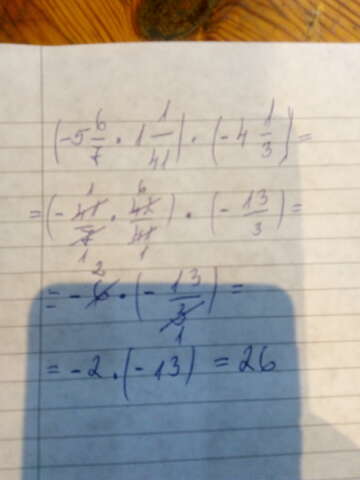 (-5 6/7 · 1 1/41) · (-4 1/3) =
= (- 41/7 · 42/41) · (- 13/3) =
= -6 · (- 13/3) =
= -2 · (-13) = 26